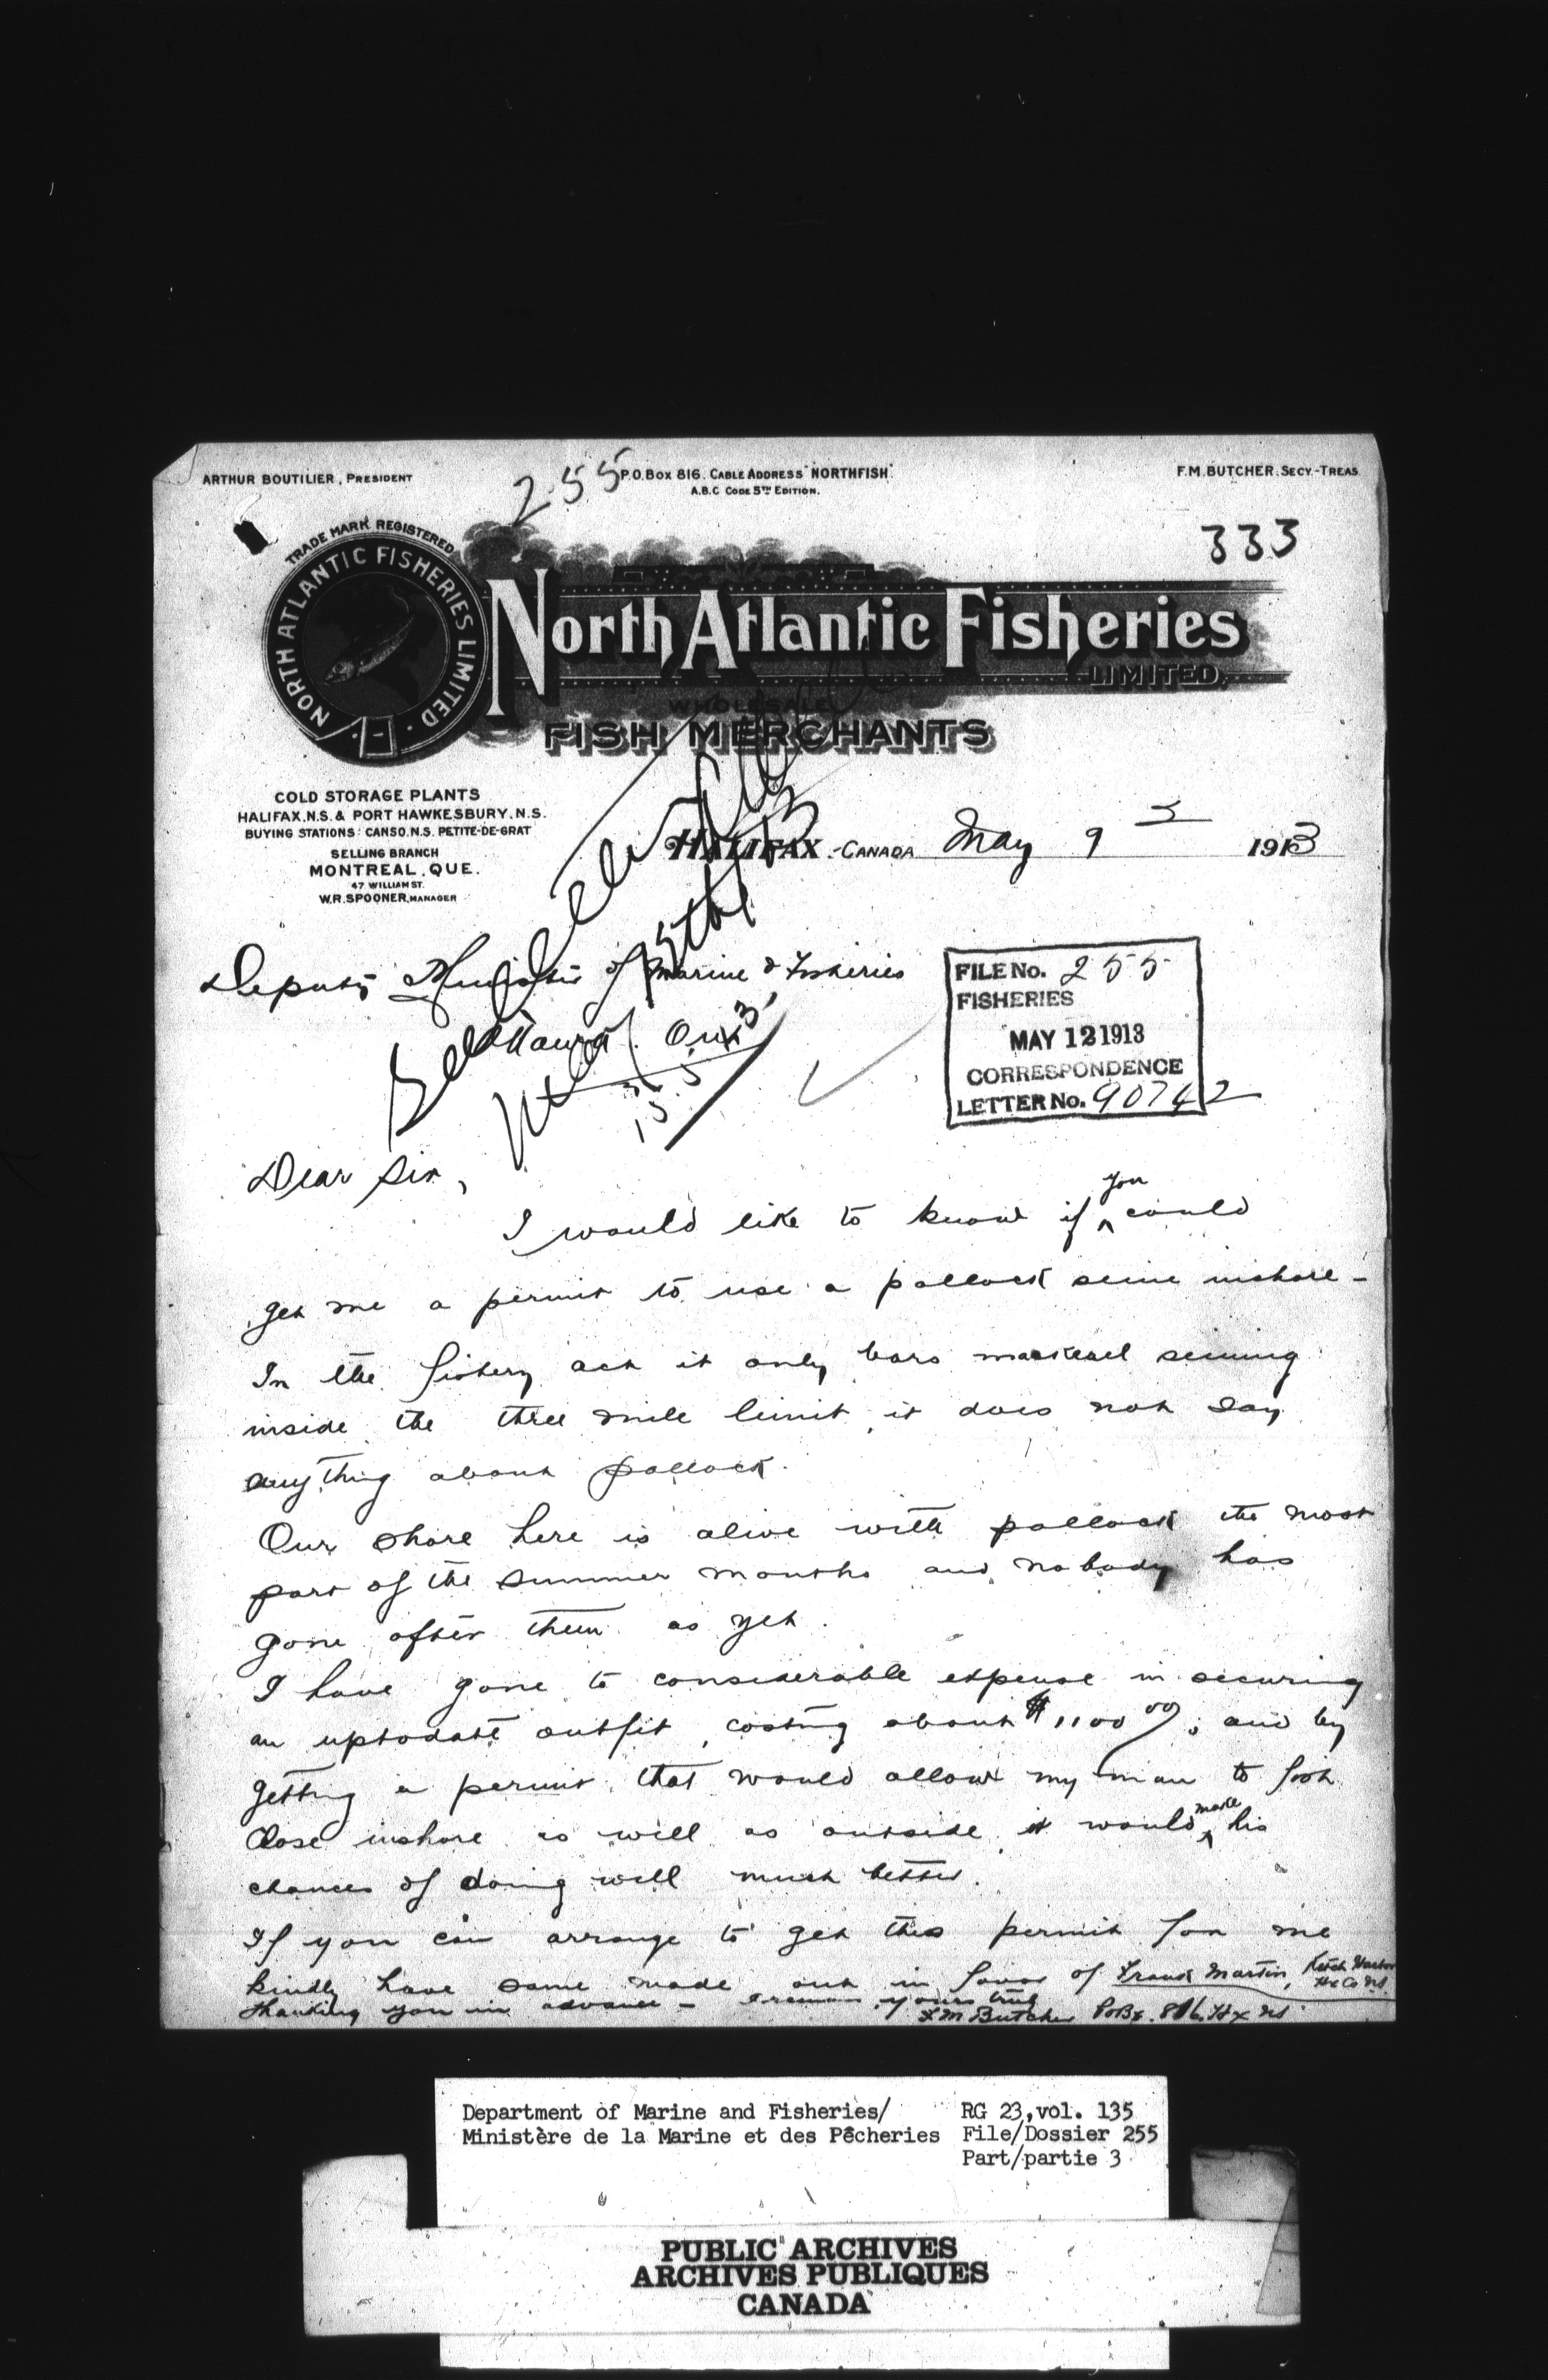 ARTHUR BOUTILIER, PRESIDENT
255
P.O. BOX 816. CABLE ADDRESS "NORTHFISH".
A.B.C CODE 5TH EDITION.
F.M. BUTCHER. SECY.-TREAS.
333
TRADE MARK REGISTERED
NORTH ATLANTIC FISHERIES LIMITED
North Atlantic Fisheries
LIMITED,
WHOLESALE
FISH MERCHANTS
COLD STORAGE PLANTS
HALIFAX.N.S. & PORT HAWKESBURY.N.S.
BUYING STATIONS: CANSO.N.S. PETITE-DE-GRAT
SELLING BRANCH
MONTREAL, QUE.
47 WILLIAM ST.
W.R. SPOONER, MANAGER
HALIFAX - CANADA May 9 1913
Deputy Minister of Marine & Fisheries
Ottawa. Ont
FILE No. 255
FISHERIES
MAY 12 1913
CORRESPONDENCE
LETTER No. 90742
Dear Sir,
I would like to know if you could
get me a permit to use a pollock seine inshore -
In the fishery act it only bars mackerel seining
inside the three mile limit, it does not say
anything about pollock.
Our shore here is alive with pollock the most
part of the summer months and nobody has
gone after them as yet.
I have gone to considerable expense in securing
an uptodate outfit, costing about $1100 00; and by
getting a permit, that would allow my man to fish
close inshore as well as outside, it would make his
chances of doing well much better.
If you can arrange to get this permit for me
kindly have same made out in favor of Frank Martin, Ketch Harbor
Hx Co NS.
thanking you in advance - I remain yours truly
F M Butcher PoBx. 816. Hx NS
Department of Marine and Fisheries/
Ministère de la Marine et des Pêcheries
RG 23, vol. 135
File/Dossier 255
Part/partie 3
PUBLIC ARCHIVES
ARCHIVES PUBLIQUES
CANADA